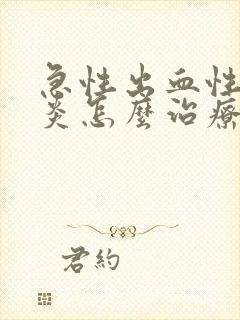 急性出血性
炎怎麼治療
君約